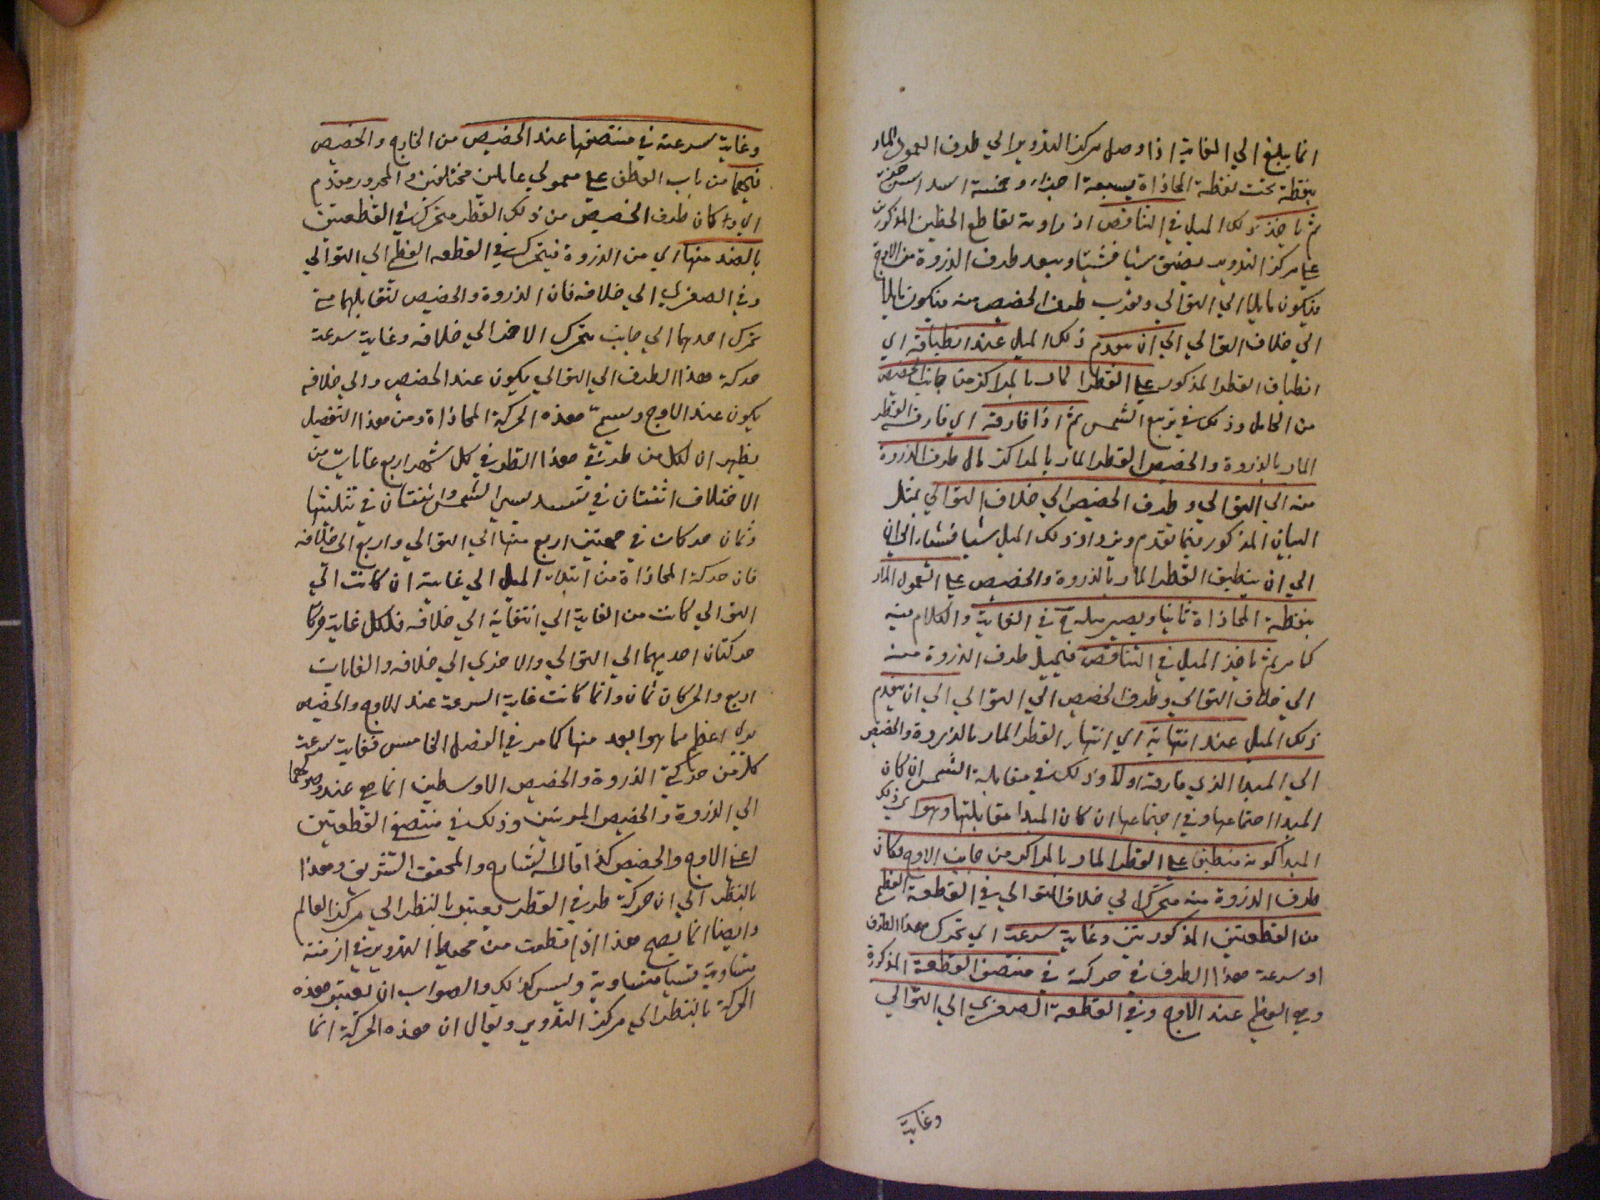 انما يبلغ الي الغاية اذا وصل مركز التدوير الي طرف العمود المار
بنقطة تحت نقطة المحاذاة بسبعة اجزاء وخمسة اسداس جزء
ثم ياخذ ذلك الميل في التناقص اذ زاوية تقاطع الخطين المذكورين
علي مركز التدوير يضيق شيا فشيا ويبعد طرف الذروة من الاوج
فيكون مايلا الي التوالي ويقرب طرف الحضيض منه فيكون مايلا
الي خلاف التوالي الي ان يعدم ذلك الميل عند انطباقه اي
انطباق القطر المذكور علي القطر المار بالمراكز من جانب الحضيض
من الحامل وذلك في تربيع الشمس ثم اذا فارقه اي فارق القطر
المار بالذروة والحضيض القطر المار بالمراكز مال طرف الذروة
منه الي التوالي وطرف الحضيض الي خلاف التوالي بمثل
البيان المذكور فيما تقدم ويزداد ذلك الميل شيا فشيا الي ان
الي ان ينطبق القطر المار بالذروة والحضيض علي العمود المار
بنقطة المحاذاة ثانيا ويصير ميله ح في الغاية والكلام فيه
كما مر ثم ياخذ الميل في التناقص فيميل طرف الذروة منه
الي خلاف التوالي وطرف الحضيض الي التوالي الي ان يعدم
ذلك الميل عند انتهائه اي انتهاء القطر المار بالذروة والحضيض
الي المبدا الذي فارقه اولا وذلك في مقابلة الشمس ان كان
المبدا اجتماعها وفي اجتماعها ان كان المبدا مقابلتها وهو اي ذلك
المبدا كونه منطبقا علي القطر المار بالمراكز من جانب الاوج فكان
طرف الذروة منه متحركا الي خلاف التوالي في القطعة العظمي
من القطعتين المذكورتين وغاية سرعته اي تحرك هذا الطرف
او سرعة هذا الطرف في حركته في منتصف القطعة المذكورة
وهي العظمي عند الاوج وفي القطعة الصغري الي التوالي
وغاية
وغاية سرعته في منتصفها عند الحضيض من الخارج والحضيض
فيهما من باب العطف علي معمولي عاملين مختلفين والمجرور مقدم
اي وكان طرف الحضيض من ذلك القطر متحركا في القطعتين
بالضد منها اي من الذروة فيتحرك في القطعة العظمي الي التوالي
وفي الصغري الي خلافه فان الذروة والحضيض لتقابلهما متي
تحرك احدهما الي جانب يتحرك الاخر الي خلافه وغاية سرعة
حركة هذا الطرف الي التوالي يكون عند الحضيض والي خلافه
يكون عند الاوج ويسمي هذه الحركة المحاذاة ومن هذا التفصيل
يظهر ان لكل من طرفي هذا القطر في كل شهر اربع غايات من
الاختلاف اثنتان في تسديسي الشمس واثنتان في تثليثها
وثمان حركات في جهتين اربع منها الي التوالي واربع الي خلافه
فان حركة المحاذاة من ابتداء الميل الي غايته ان كانت الي
التوالي كانت من الغاية الي انتفائه الي خلافه فلكل غاية
حركتان احديهما الي التوالي والاخري الي خلافه والغايات
اربع والحركات ثمان وانما كانت غاية السرعة عند الاوج والحضيض
اعظم مما هو ابعد منها كما مر في الفصل الخامس فغاية سرعة
كل من حركتي الذروة والحضيض الاوسطين انما هي عند وصولهما
الي الذروة والحضيض المرئيين وذلك في منتصفي القطعتين
اعني الاوج والحضيض كذا قال الشارح والمحقق الشريف وهذا
بالنظر الي ان حركة طرفي القطر يعتبر بالنظر الي مركز العالم
وايضا انما يصح هذا اذا قطعت من محيط التدوير في ازمنة
متساوية قسيا متساوية وليس كذلك والصواب ان يعتبر هذه
الحركة بالنظر الي مركز التدوير ويقال ان هذه الحركة انما